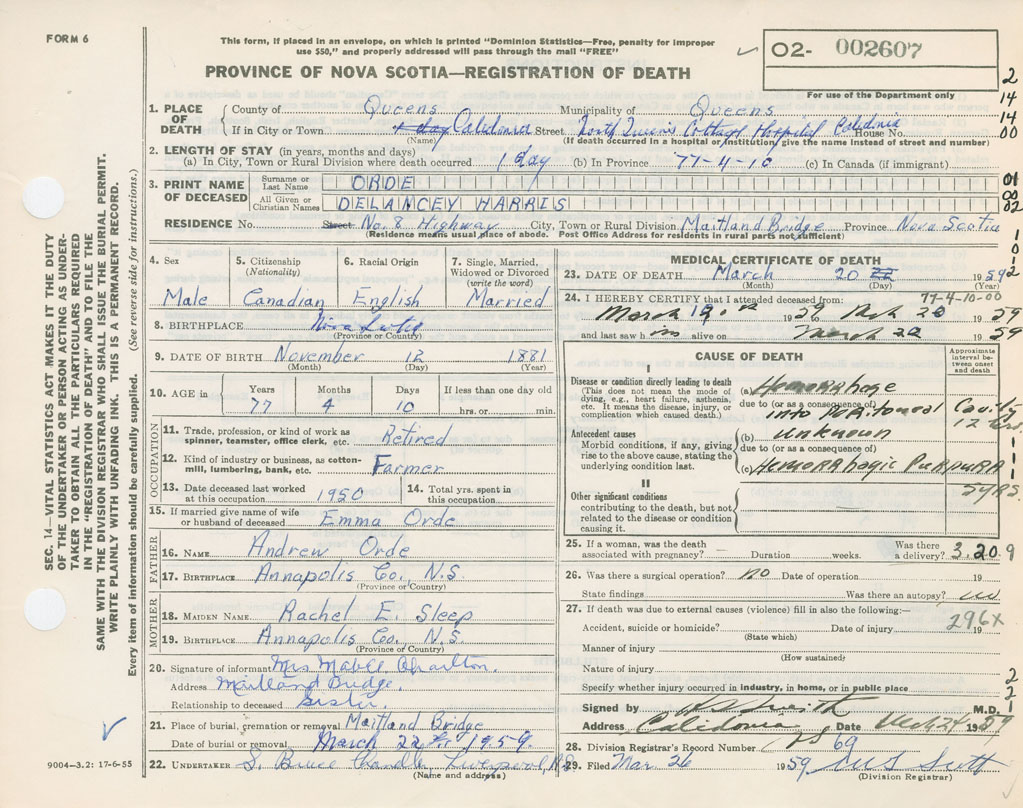 FORM 6
This form, if placed in an envelope, on which is printed "Dominion Statistics—Free, penalty for improper
use $50," and properly addressed will pass through the mail "FREE"
02- 002607
PROVINCE OF NOVA SCOTIA—REGISTRATION OF DEATH
For use of the Department only
2
14
14
00
1. PLACE OF DEATH
County of Queens Municipality of Queens
If in City or Town 1 day Caledonia Street North Queens Cottage Hospital Caledonia House No.
(Name) (If death occurred in a hospital or institution, give the name instead of street and number)
2. LENGTH OF STAY (in years, months and days)
(a) In City, Town or Rural Division where death occurred 1 day (b) In Province 77-4-10 (c) In Canada (if immigrant)
3. PRINT NAME OF DECEASED
Surname or Last Name ORDE
All Given or Christian Names DELANCEY HARRIS
01
00
02
RESIDENCE No. Street No. 8 Highway City, Town or Rural Division Maitland Bridge Province Nova Scotia
(Residence means usual place of abode. Post Office Address for residents in rural parts not sufficient)
1
0
1
0
2
4. Sex
Male
5. Citizenship
(Nationality)
Canadian
6. Racial Origin
English
7. Single, Married,
Widowed or Divorced
(write the word)
Married
8. BIRTHPLACE Nova Scotia
(Province or Country)
9. DATE OF BIRTH November 12 1881
(Month) (Day) (Year)
10. AGE in
Years Months Days If less than one day old
77 4 10 hrs. or min.
OCCUPATION
11. Trade, profession, or kind of work as
spinner, teamster, office clerk, etc. Retired
12. Kind of industry or business, as cotton-
mill, lumbering, bank, etc. Farmer
13. Date deceased last worked
at this occupation 1950
14. Total yrs. spent in
this occupation
15. If married give name of wife
or husband of deceased Emma Orde
FATHER
16. NAME Andrew Orde
17. BIRTHPLACE Annapolis Co. N.S.
(Province or Country)
MOTHER
18. MAIDEN NAME Rachel E. Sleep
19. BIRTHPLACE Annapolis Co. N.S.
(Province or Country)
20. Signature of informant Mrs Mable Charlton.
Address Maitland Bridge.
Relationship to deceased Sister.
21. Place of burial, cremation or removal Maitland Bridge
Date of burial or removal March 22 1959.
22. UNDERTAKER S. Bruce Chandler Liverpool, N.S.
(Name and address)
MEDICAL CERTIFICATE OF DEATH
23. DATE OF DEATH March 20 22 1959
(Month) (Day) (Year)
24. I HEREBY CERTIFY that I attended deceased from: 77-4-10-00
March 19 1959 to Mch 20 1959
and last saw him alive on March 20 1959
CAUSE OF DEATH
Approximate
interval be-
tween onset
and death
I
Disease or condition directly leading to death
(This does not mean the mode of
dying, e.g., heart failure, asthenia,
etc. It means the disease, injury, or
complication which caused death.)
(a) Hemorrhage
due to (or as a consequence of)
into Peritoneal Cavity
12 hrs.
Antecedent causes
Morbid conditions, if any, giving
rise to the above cause, stating the
underlying condition last.
(b) Unknown
due to (or as a consequence of)
(c) Hemorrhagic Purpura
5 yrs.
II
Other significant conditions
contributing to the death, but not
related to the disease or condition
causing it.
25. If a woman, was the death
associated with pregnancy? Duration weeks.
Was there
a delivery? 3.20.9
26. Was there a surgical operation? no Date of operation 19
State findings Was there an autopsy? no
27. If death was due to external causes (violence) fill in also the following:—
Accident, suicide or homicide? Date of injury 19
(State which)
296x
Manner of injury
(How sustained)
Nature of injury
Specify whether injury occurred in industry, in home, or in public place
2
2
1
Signed by Smith M.D.
Address Caledonia Date Mch 24 1959
28. Division Registrar's Record Number 69
29. Filed Mar 26 1959 Scott
(Division Registrar)
SEC. 14—VITAL STATISTICS ACT MAKES IT THE DUTY
OF THE UNDERTAKER OR PERSON ACTING AS UNDER-
TAKER TO OBTAIN ALL THE PARTICULARS REQUIRED
IN THE "REGISTRATION OF DEATH" AND TO FILE THE
SAME WITH THE DIVISION REGISTRAR WHO SHALL ISSUE THE BURIAL PERMIT.
WRITE PLAINLY WITH UNFADING INK. THIS IS A PERMANENT RECORD.
Every item of information should be carefully supplied. (See reverse side for instructions.)
9004-3.2: 17-6-55